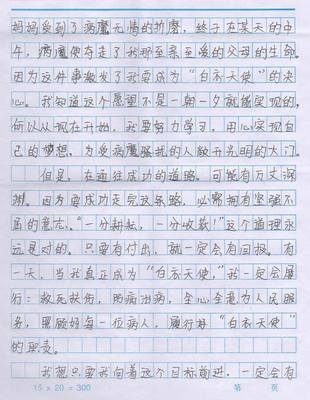 妈妈受到了病魔无情的折磨，终于在某天的中
午，病魔便夺走了我那至亲至爱的父母的生命。
因为这件事激发了我要成为“白衣天使”的决
心。我知道这个愿望不是一朝一夕就能实现的，
所以从现在开始，我要努力学习，用心实现自
己的梦想，为受病魔骚扰的人敞开光明的大门。
但是，在通往成功的道路，可能有万丈深
渊。因为要成功走完这条路，必需拥有坚强不
屈的意志。“一分耕耘，一分收获！”这个道理永
远是对的。只要有付出，就一定会有回报。有
一天，当我真正成为“白衣天使，”我一定会履
行：救死扶伤，防病治病，全心全意为人民服
务，照顾好每一位病人，履行好“白衣天使”
的职责。
我想只要我向着这个目标前进，一定会有
15×20=300 第 页